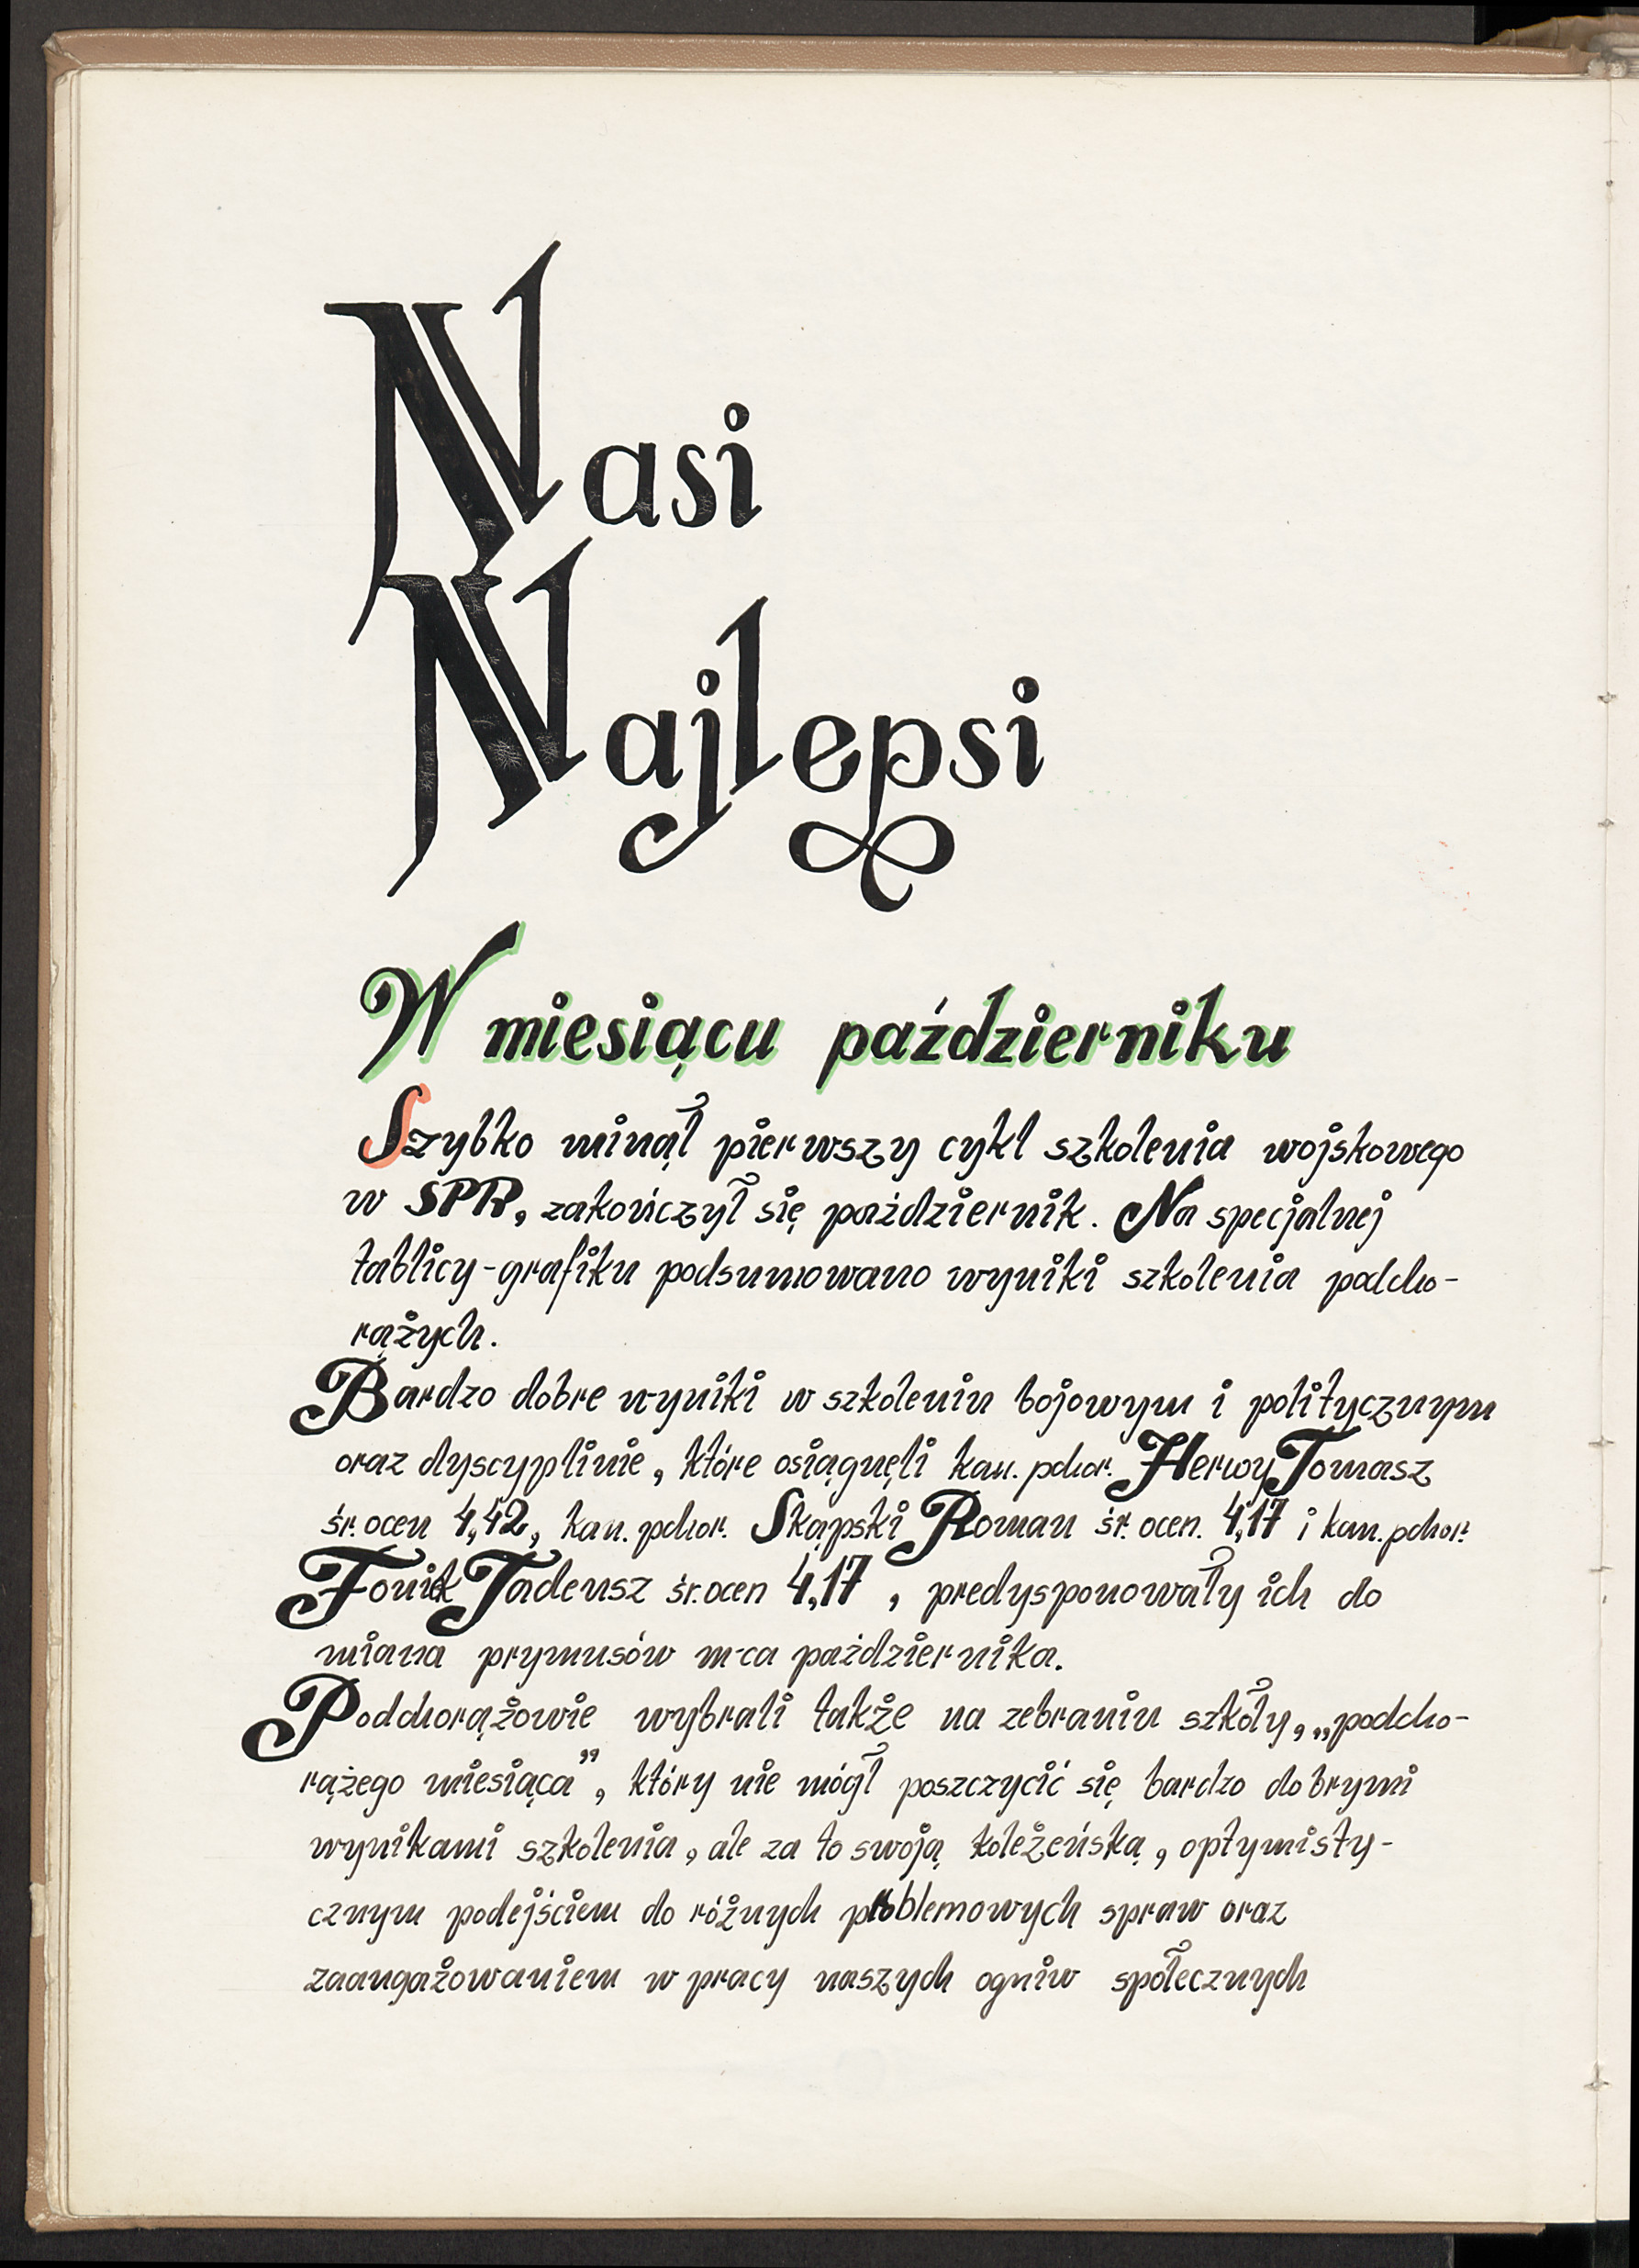 Nasi
Najlepsi
W miesiącu październiku
Szybko minął pierwszy cykl szkolenia wojskowego
w SPR, zakończył się październik. Na specjalnej
tablicy-grafiku podsumowano wyniki szkolenia podcho-
rążych.
Bardzo dobre wyniki w szkoleniu bojowym i politycznym
oraz dyscyplinie, które osiągnęli kan. pchor. Herwy Tomasz
śr. ocen 4,42, kan. pchor. Skąpski Roman śr. ocen. 4,17 i kan. pchor.
Foniek Tadeusz śr. ocen 4,17 , predysponowały ich do
miana prymusów m-ca października.
Podchorążowie wybrali także na zebraniu szkoły, „podcho-
rążego miesiąca”, który nie mógł poszczycić się bardzo dobrymi
wynikami szkolenia, ale za to swoją koleżeńską, optymisty-
cznym podejściem do różnych problemowych spraw oraz
zaangażowaniem w pracy naszych ogniw społecznych